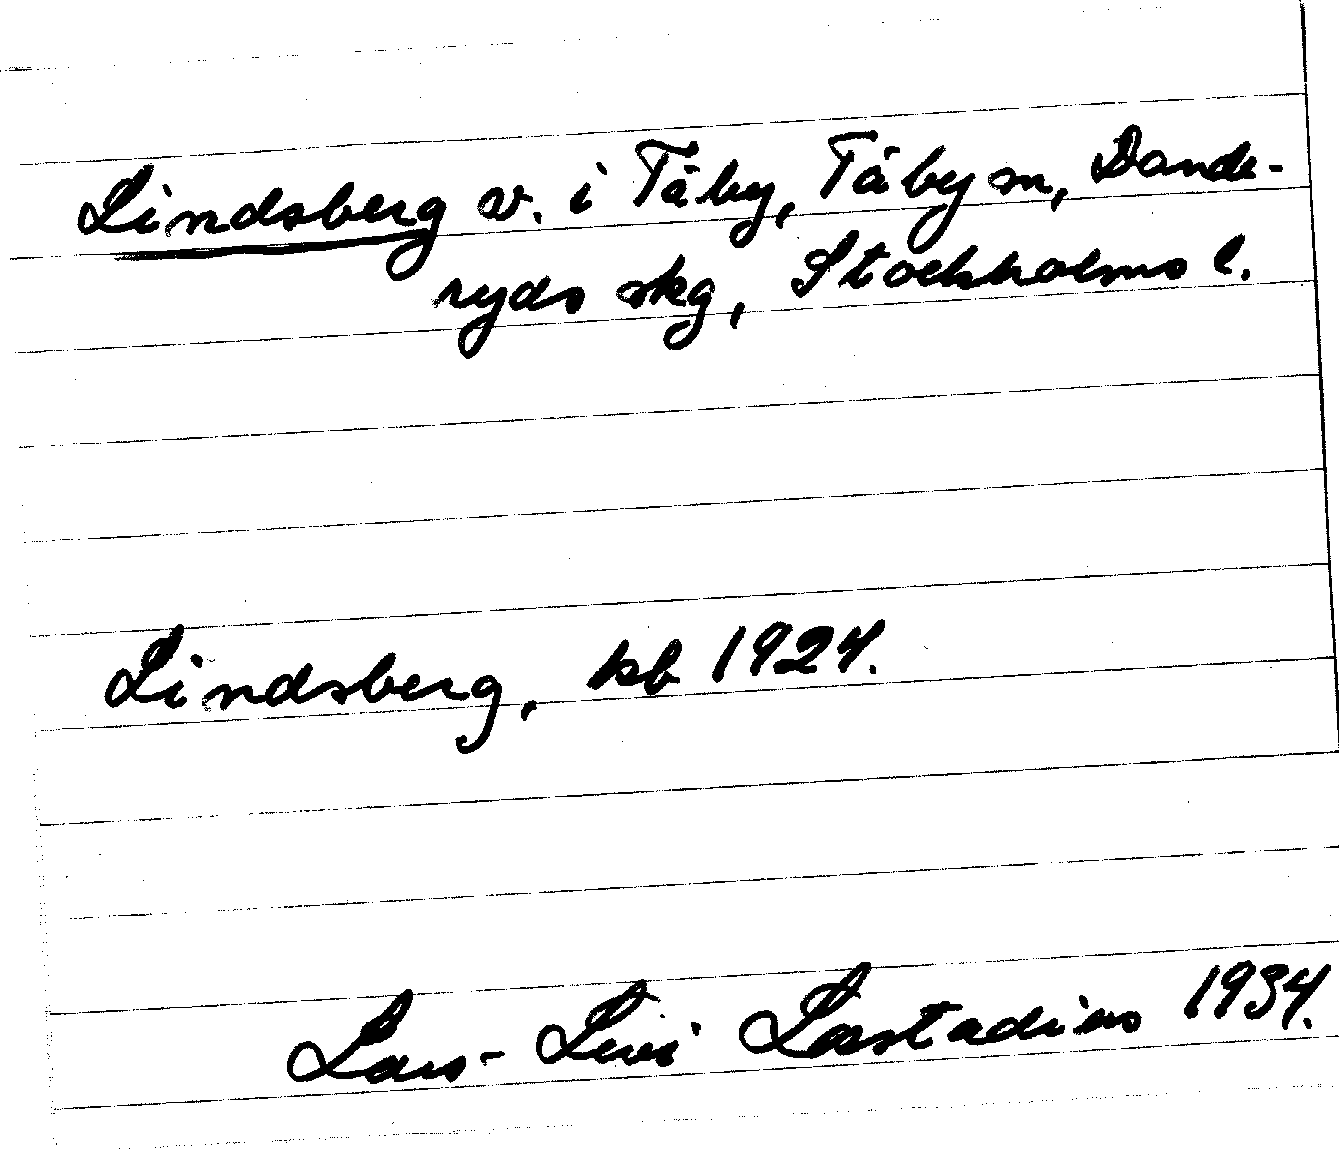 Lindsberg v. i Täby, Täby sn, Dande-
ryds skg, Stockholms l.
Lindsberg, kb 1924.
Lars-Levi Læstadius 1934.